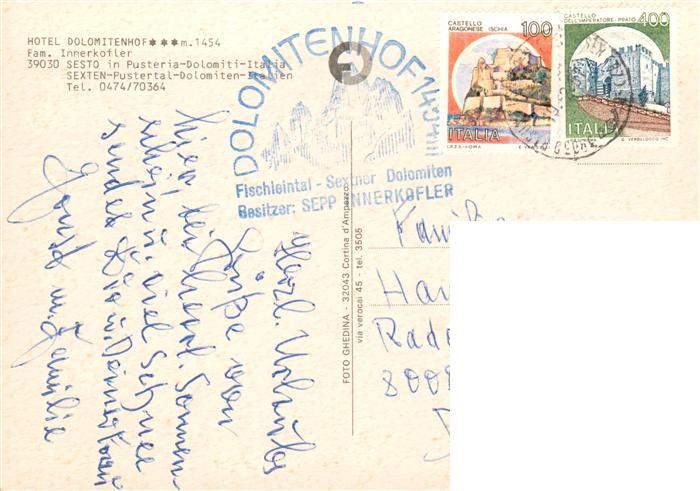 HOTEL DOLOMITENHOF***m.1454
Fam. Innerkofler
39030 SESTO in Pusteria-Dolomiti-Italia
SEXTEN-Pustertal-Dolomiten-Italien
Tel. 0474/70364
DOLOMITENHOF 1454m
Fischleintal - Sextner Dolomiten
Besitzer: SEPP INNERKOFLER
CASTELLO
ARAGONESE ISCHIA
100
ITALIA
I.P.Z.S.-ROMA
CASTELLO
DELL'IMPERATORE-PRATO
400
ITALIA
Herzl. Urlaubs
Grüße von
hier bei
Sonnen-
schein u. viel Schnee
sendet
Horst u. Familie
FOTO GHEDINA - 32043 Cortina d'Ampezzo
via verocai 45 - tel. 3505